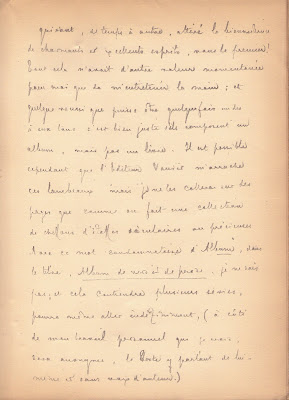 qui dont, de temps à autre, attiré la bienveillance
de charmants et excellents esprits, vous le premier!
Tout cela n'avait d'autre valeur momentanée
pour moi que de m'entretenir la main; et
quelque réussi que puisse être quelquefois un des
à eux tous c'est bien juste s'ils composent un
album, mais pas un livre. Il est possible
cependant que l'Editeur Vanier m'arrache
ces lambeaux mais je ne les collerai sur des
pages que comme on fait une collection
de chiffons d'étoffes séculaires ou précieuses
Avec ce mot condamnatoire d'Album, dans
le titre, Album de vers et de prose, je ne sais
pas; et cela contiendra plusieurs séries,
pourra même aller indéfiniment, (à côté
de mon travail personnel que je crois,
sera anonyme, le Texte y parlant de lui-
même et sans voix d'auteur.)